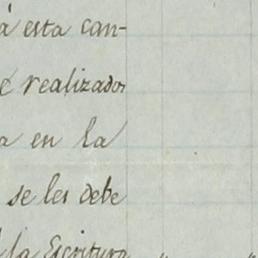 á esta can-
é realizados
a en la
se les debe
la Escritura